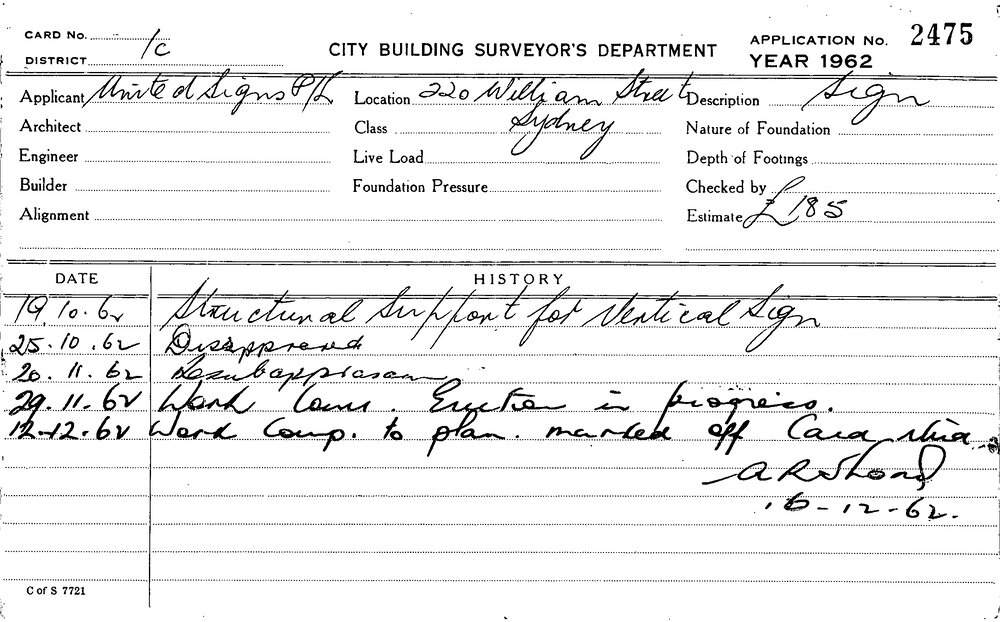 CARD No.
DISTRICT 1c
CITY BUILDING SURVEYOR'S DEPARTMENT
APPLICATION No. 2475
YEAR 1962
Applicant United Signs P/L Location 220 William Street Description Sign
Architect Class Sydney Nature of Foundation
Engineer Live Load Depth of Footings
Builder Foundation Pressure Checked by
Alignment Estimate £185
DATE HISTORY
19.10.62 Structural Support for Vertical Sign
25.10.62 Disapproved
20.11.62
29.11.62 Work Comm. Erection in progress.
12-12-62 Work Comp. to plan. marked off Card
16-12-62.
C of S 7721